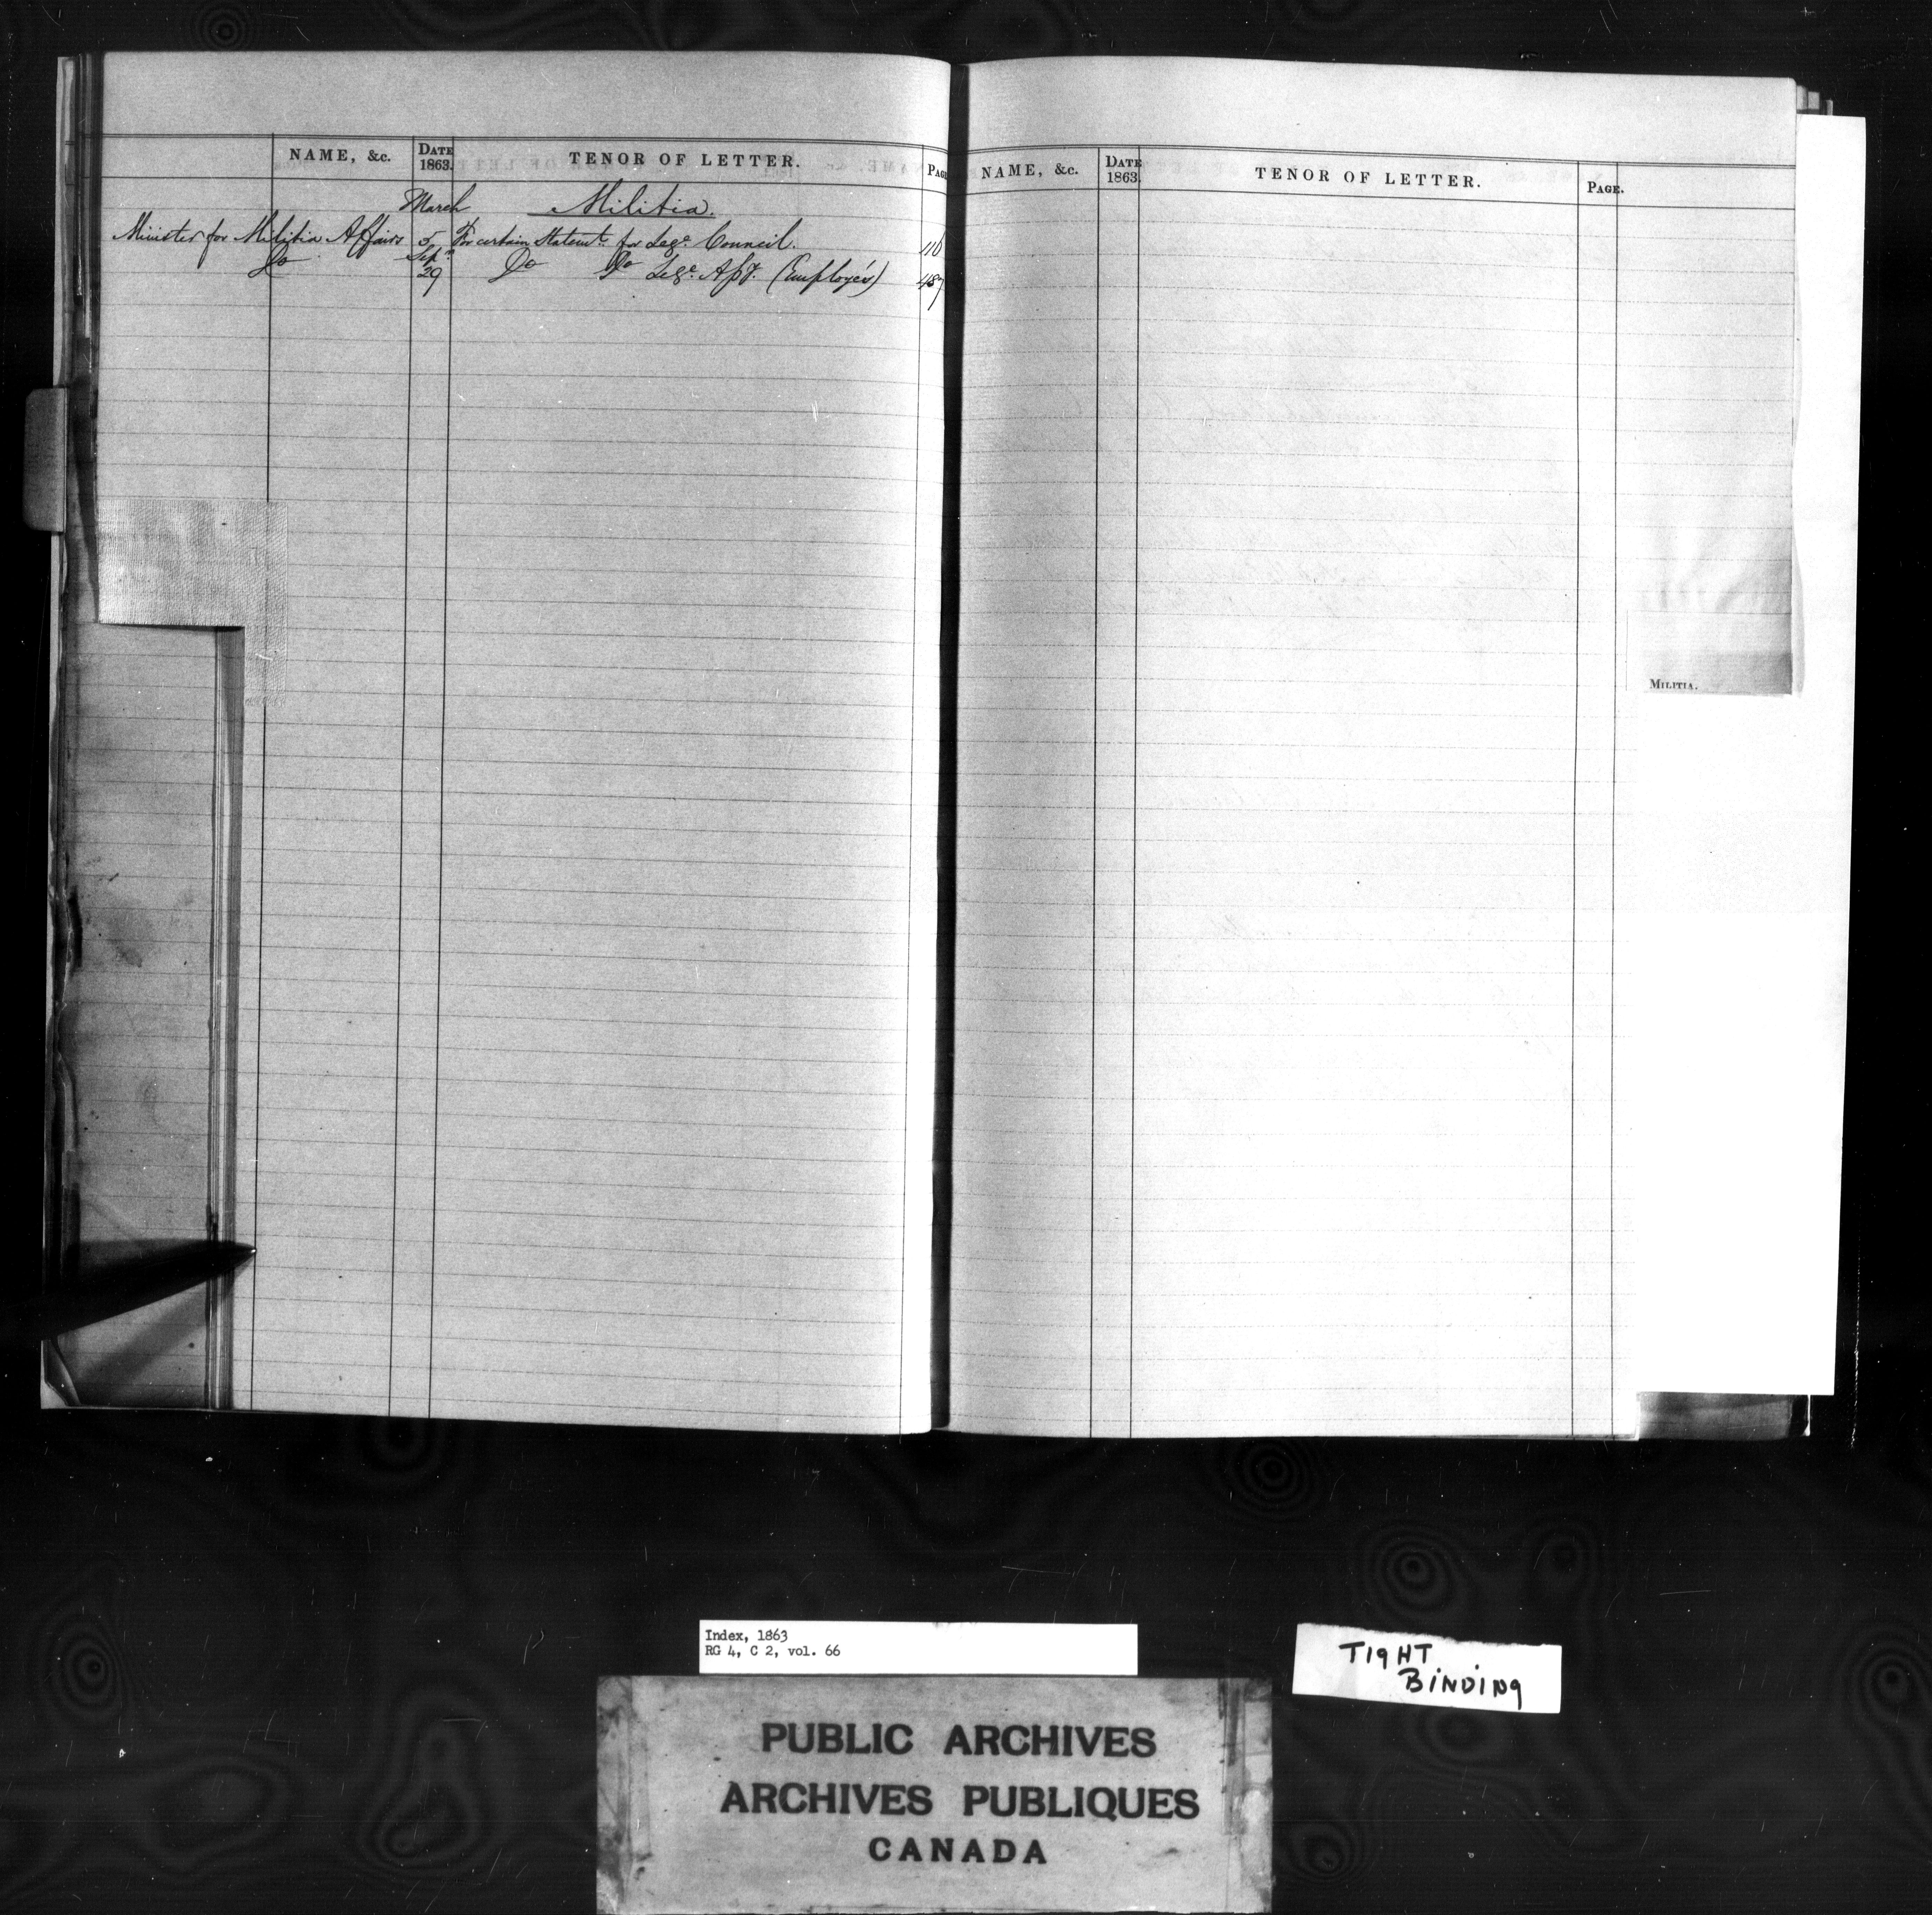 NAME, &c. DATE 1863. TENOR OF LETTER. PAGE
March Militia.
Minister for Militia Affairs 5 For certain Statemts for Lege Council. 110
Do Sepr 29 Do Do Lege Assy. (Employés) 487
NAME, &c. DATE 1863. TENOR OF LETTER. PAGE.
MILITIA.
Index, 1863
RG 4, C 2, vol. 66
TIGHT
BINDING
PUBLIC ARCHIVES
ARCHIVES PUBLIQUES
CANADA